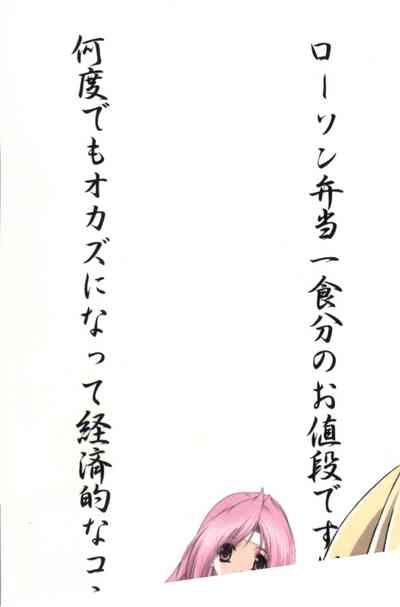 ローソン弁当一食分のお値段です
何度でもオカズになって経済的なコ